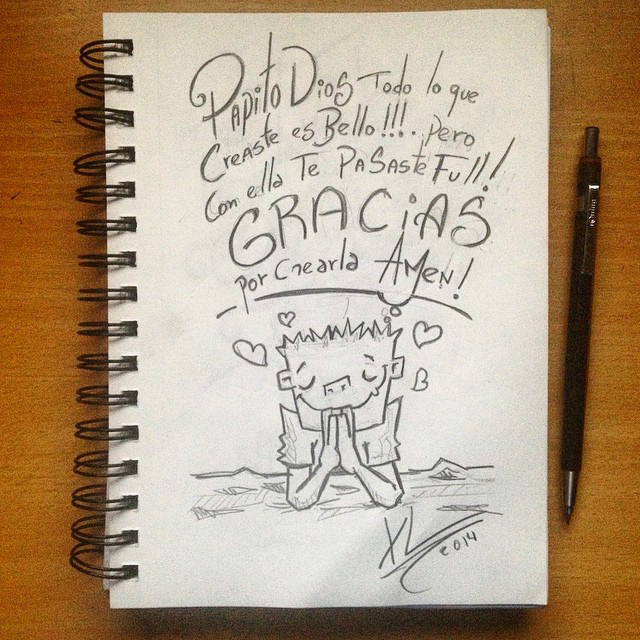 Papito Dios Todo lo que
Creaste es Bello!!!. pero
Con ella Te PaSaste Full!
GRACiAS
por Crearla AMen!
XL
2014